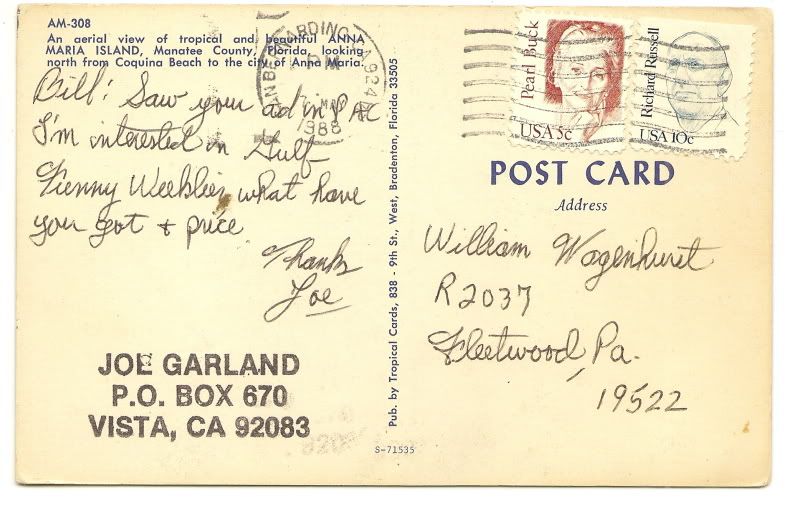 AM-308
An aerial view of tropical and beautiful ANNA
MARIA ISLAND, Manatee County, Florida, looking
north from Coquina Beach to the city of Anna Maria.
Bill! Saw your ad in PAC
I'm interested in Gulf
Funny Weeklies, what have
you got + price
Thanks
Joe
JOE GARLAND
P.O. BOX 670
VISTA, CA 92083
Pub. by Tropical Cards, 838 - 9th St., West, Bradenton, Florida 33505
S-71535
SAN BERNARDINO, CA 924
PM
MA
1988
Pearl Buck
USA 5c
Richard Russell
USA 10c
POST CARD
Address
William Wagenhurst
R2037
Fleetwood, Pa.
19522